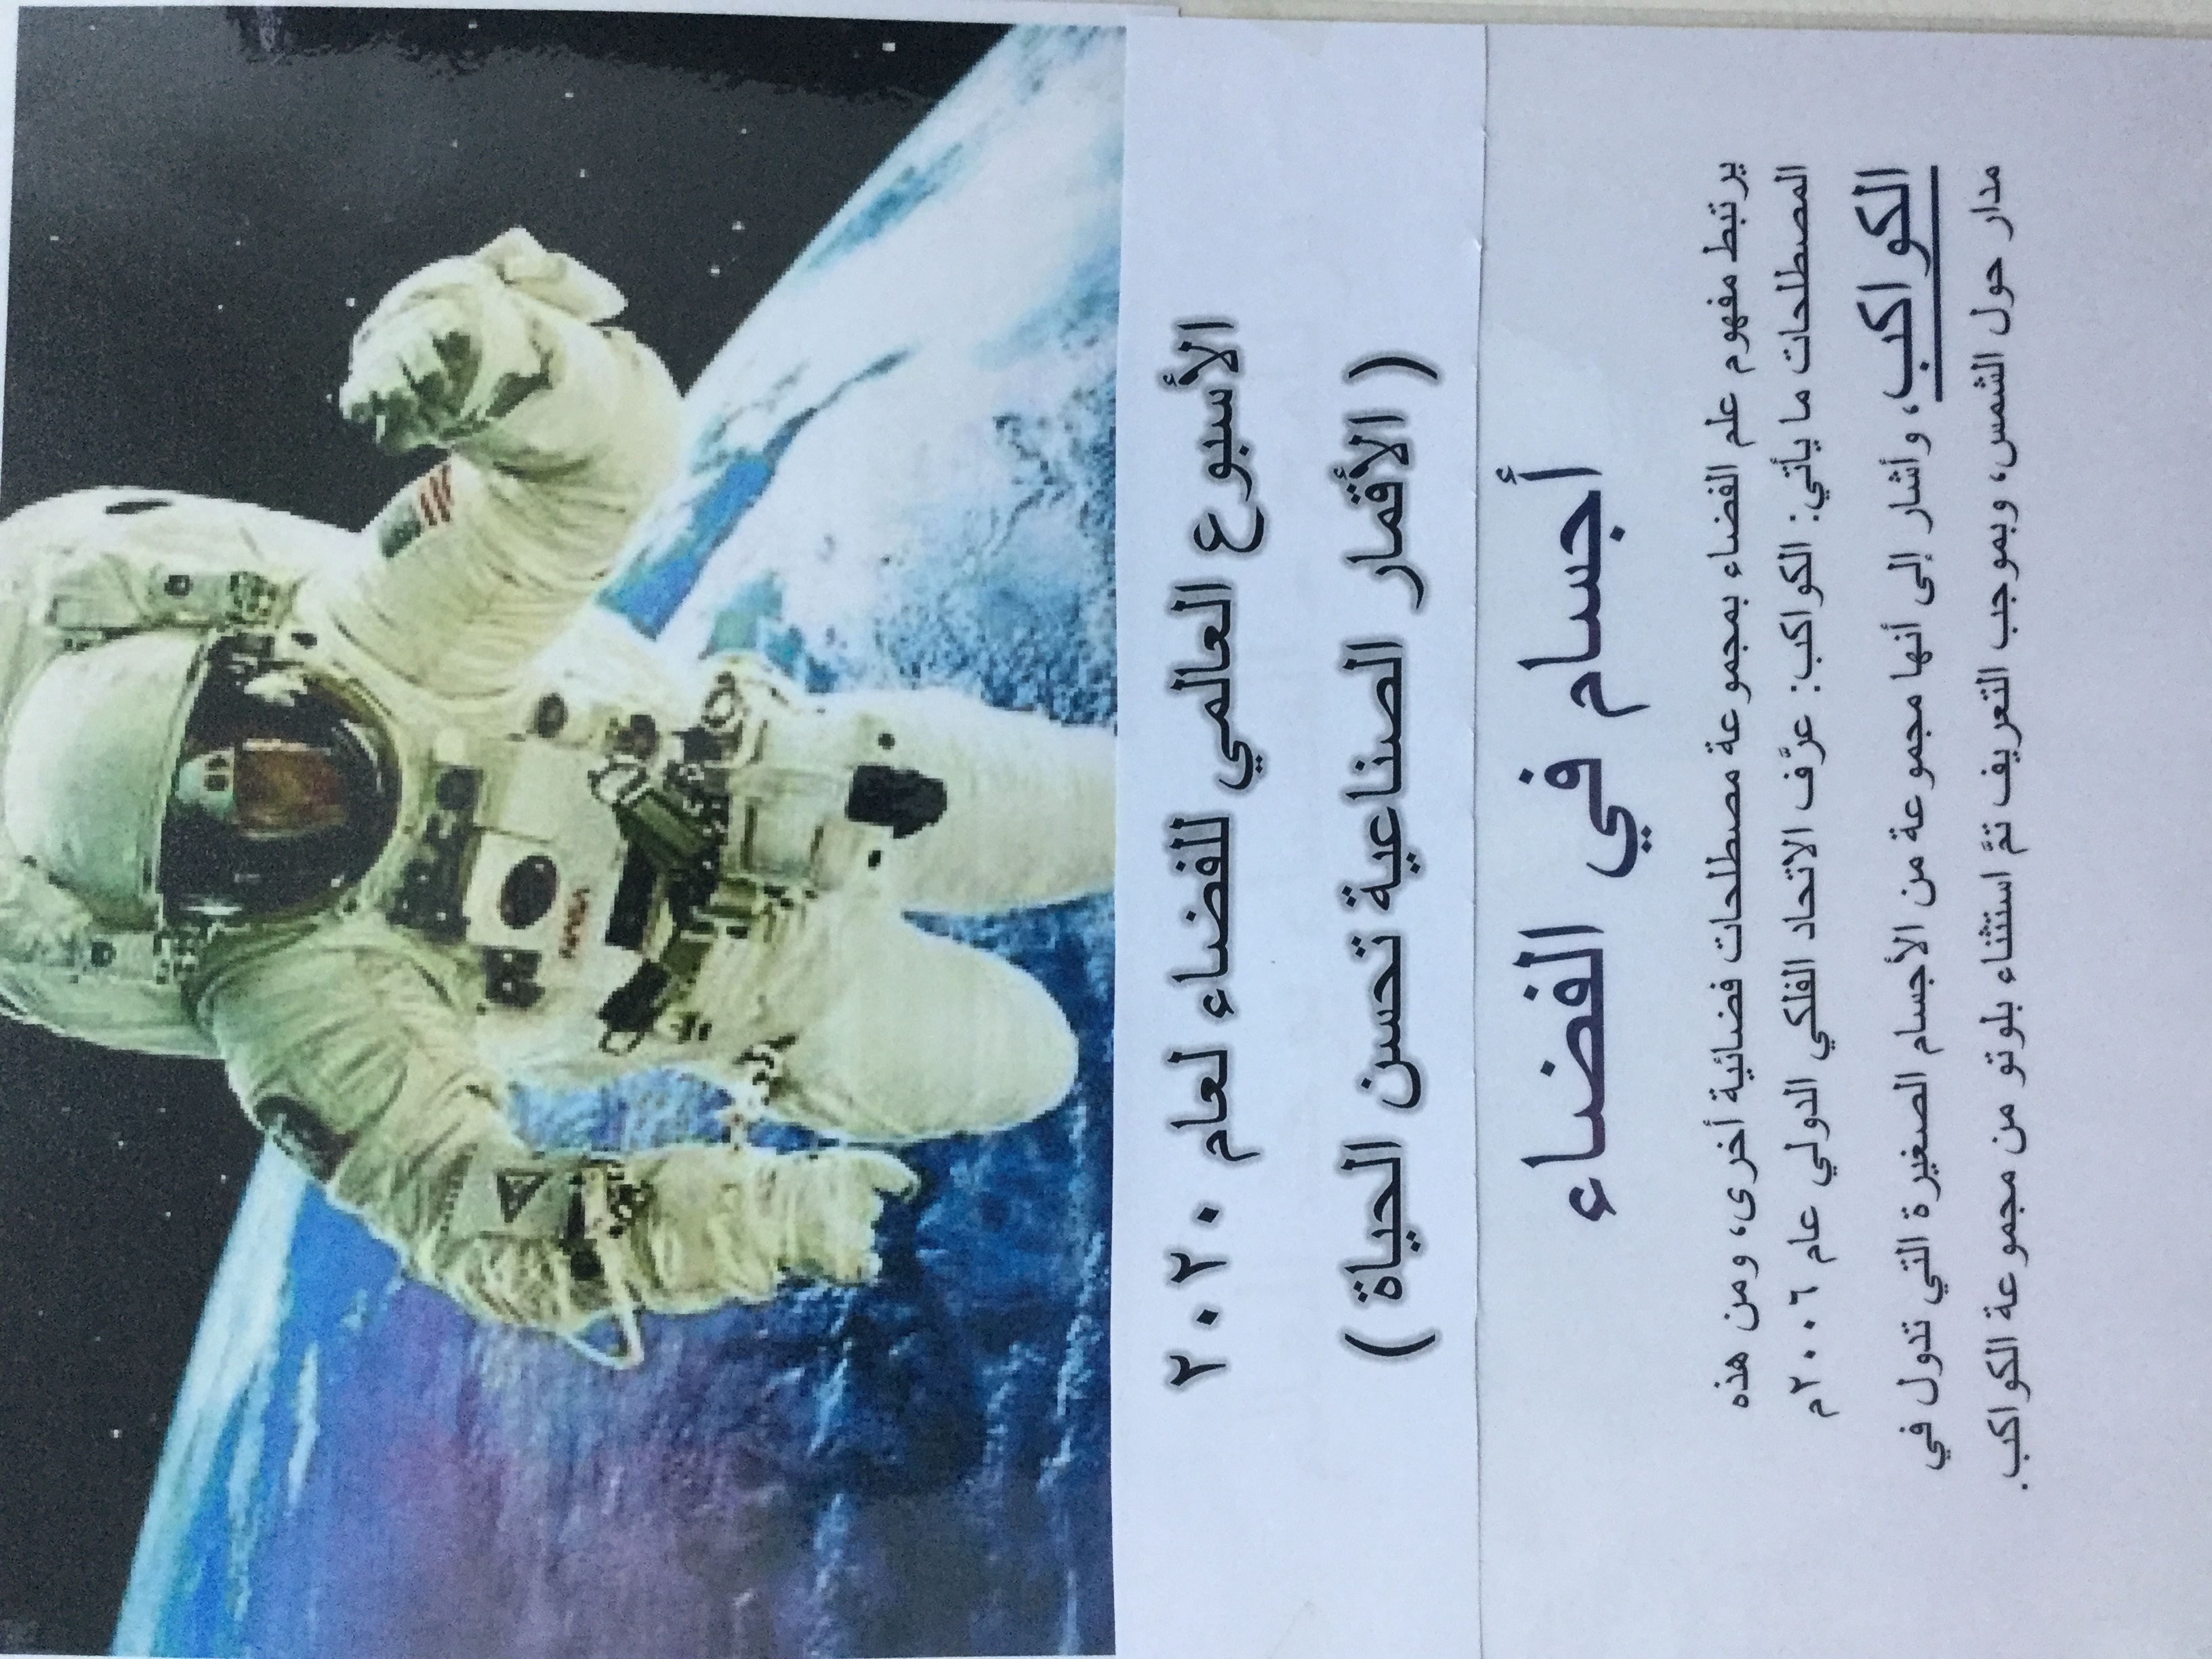 NASA
الأسبوع العالمي للفضاء لعام ٢٠٢٠
( الأقمار الصناعية تحسن الحياة )
أجسام في الفضاء
يرتبط مفهوم علم الفضاء بمجموعة مصطلحات فضائية أخرى، ومن هذه
المصطلحات ما يأتي: الكواكب: عرَّف الاتحاد الفلكي الدولي عام ٢٠٠٦م
الكواكب، وأشار إلى أنها مجموعة من الأجسام الصغيرة التي تدول في
مدار حول الشمس، وبموجب التعريف تمَّ استثناء بلوتو من مجموعة الكواكب.